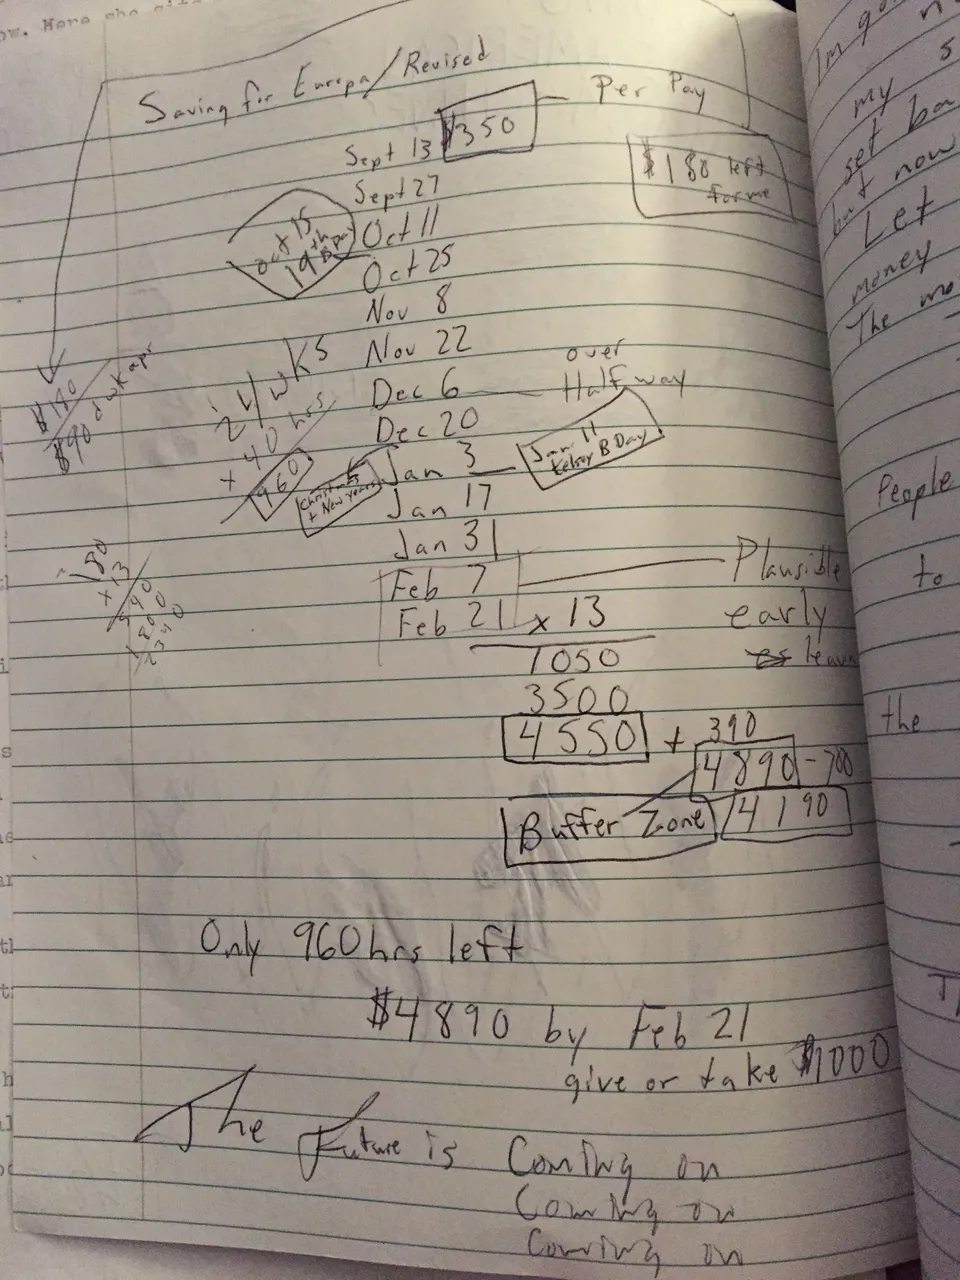 Saving for Europa/Revised
$350
Per Pay
Sept 13
$180 left
for me
Sept 27
Oct 15
19th Bday
Oct 11
Oct 25
Nov 8
Nov 22
$180
$90
24 wks
x 40 hrs
960
Dec 6
over
Half way
Dec 20
Christmas
+ New years
Jan 3
Jan 11
Kelsey B Day
Jan 17
Jan 31
180
x 13
540
1800
2340
Feb 7
Plausible
early
Feb 21 x 13
1050
3500
4550 + 390
4890 - 700
Buffer Zone
4190
Only 960 hrs left
$4890 by Feb 21
give or take $1000
The Future is Coming on
Coming on
Coming on
my
set
but now
Let
money
The
People
to
the